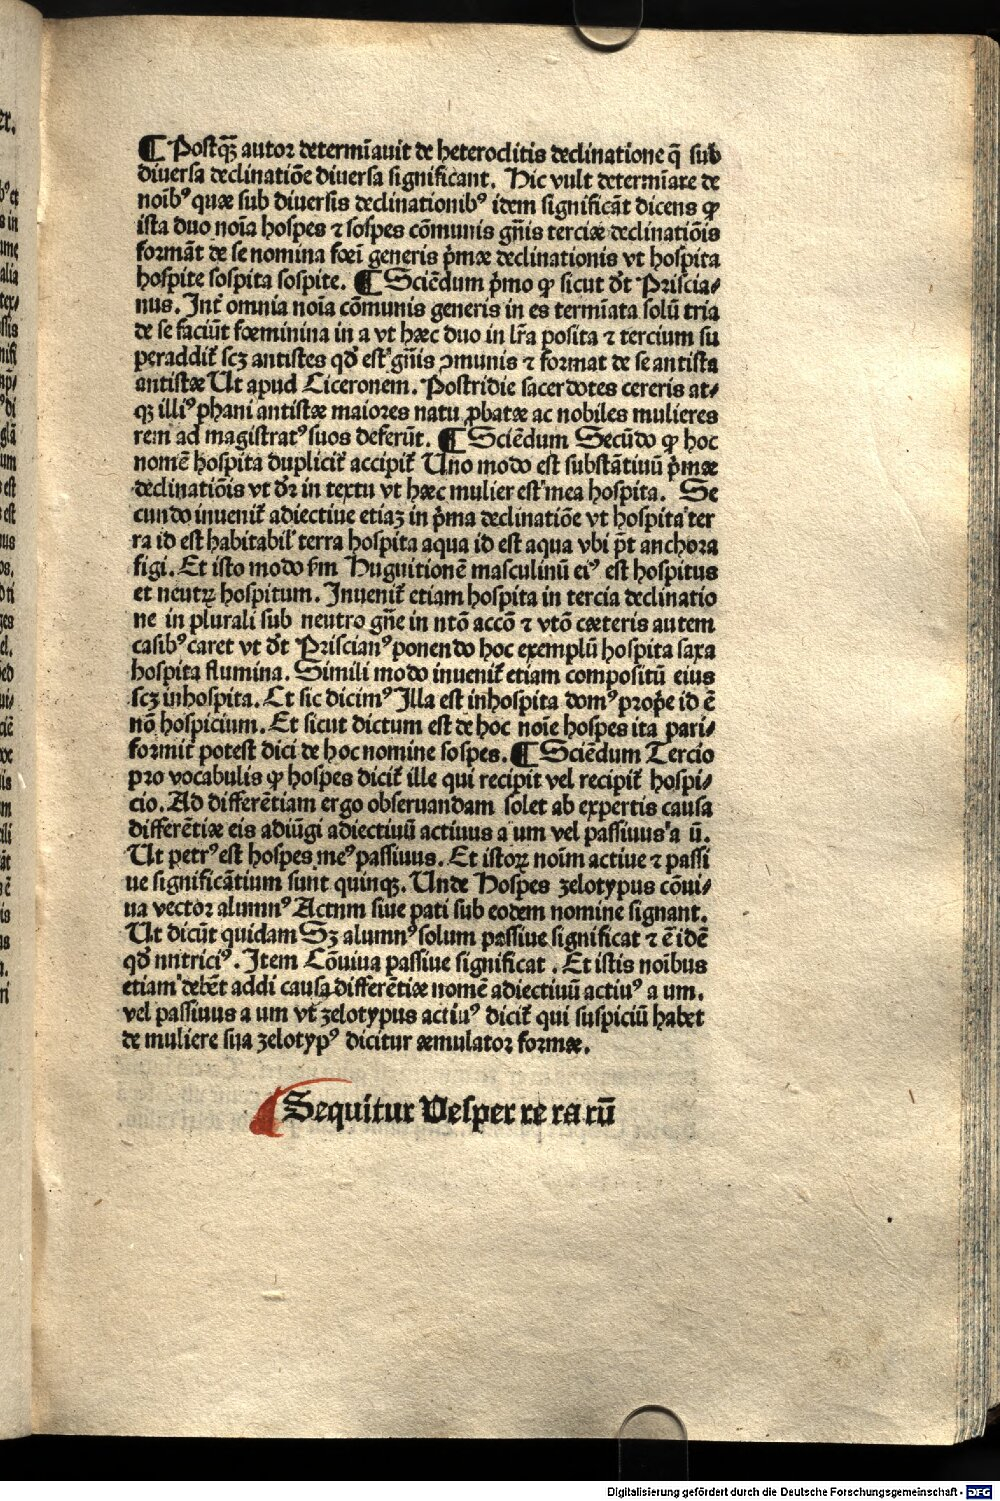 ¶ Postqȝ autor determīauit de heteroclitis declinatione q̄ sub
diuersa declinatiōe diuersa significant. Hic vult determīare de
noīb⁹ quæ sub diuersis declinationib⁹ idem significāt dicens ꝙ
ista duo noīa hospes ⁊ sospes cōmunis gn̄is terciæ declinatiōis
formāt de se nomina foēi generis p̄mæ declinationis vt hospita
hospite sospita sospite. ¶ Sciēdum p̄mo ꝙ sicut dt̄ Priscia-
nus. Int̄ omnia noīa cōmunis generis in es termīata solū tria
de se faciūt fœminina in a vt hæc duo in lr̄a posita ⁊ tercium su
peraddit̄ scȝ antistes qd̄ est gn̄is ↄmunis ⁊ format de se antista
antistæ Ut apud Ciceronem. Postridie sacerdotes cereris at-
qȝ illi⁹ phani antistæ maiores natu ꝓbatæ ac nobiles mulieres
rem ad magistrat⁹ suos deferūt. ¶ Sciēdum Secūdo ꝙ hoc
nomē hospita duplicit̄ accipit̄ Uno modo est substātiuū p̄mæ
declinatiōis vt dr̄ in textu vt hæc mulier est mea hospita. Se
cundo inuenit̄ adiectiue etiaȝ in p̄ma declinatiōe vt hospita ter
ra id est habitabil̄ terra hospita aqua id est aqua vbi pt̄ anchora
figi. Et isto modo ẜm Huguitionē masculinū ei⁹ est hospitus
et neutꝝ hospitum. Inuenit̄ etiam hospita in tercia declinatio
ne in plurali sub neutro gn̄e in ntō accō ⁊ vtō cæteris autem
casib⁹ caret vt dt̄ Priscian⁹ ponendo hoc exemplū hospita saxa
hospita flumina. Simili modo inuenit̄ etiam compositū eius
scȝ inhospita. Et sic dicim⁹ Illa est inhospita dom⁹ prop̄e id ē
nō hospicium. Et sicut dictum est de hoc noīe hospes ita pari-
formit̄ potest dici de hoc nomine sospes. ¶ Sciēdum Tercio
pro vocabulis ꝙ hospes dicit̄ ille qui recipit vel recipit̄ hospi-
cio. Ad differētiam ergo obseruandam solet ab expertis causa
differētiæ eis adiūgi adiectiuū actiuus a um vel passiuus a ū.
Ut petr⁹ est hospes me⁹ passiuus. Et istoꝝ noīm actiue ⁊ passi
ue significātium sunt quinqȝ. Unde Hospes zelotypus cōui-
ua vector alumn⁹ Actum siue pati sub eodem nomine signant.
Ut dicūt quidam Sȝ alumn⁹ solum passiue significat ⁊ ē idē
qd̄ nutrici⁹. Item Cōuiua passiue significat. Et istis noībus
etiam debēt addi causa differētiæ nomē adiectiuū actiu⁹ a um.
vel passiuus a um vt zelotypus actiu⁹ dicit̄ qui suspiciū habet
de muliere sua zelotyp⁹ dicitur æmulator formæ.
Sequitur Vesper re ra rū
Digitalisierung gefördert durch die Deutsche Forschungsgemeinschaft - DFG